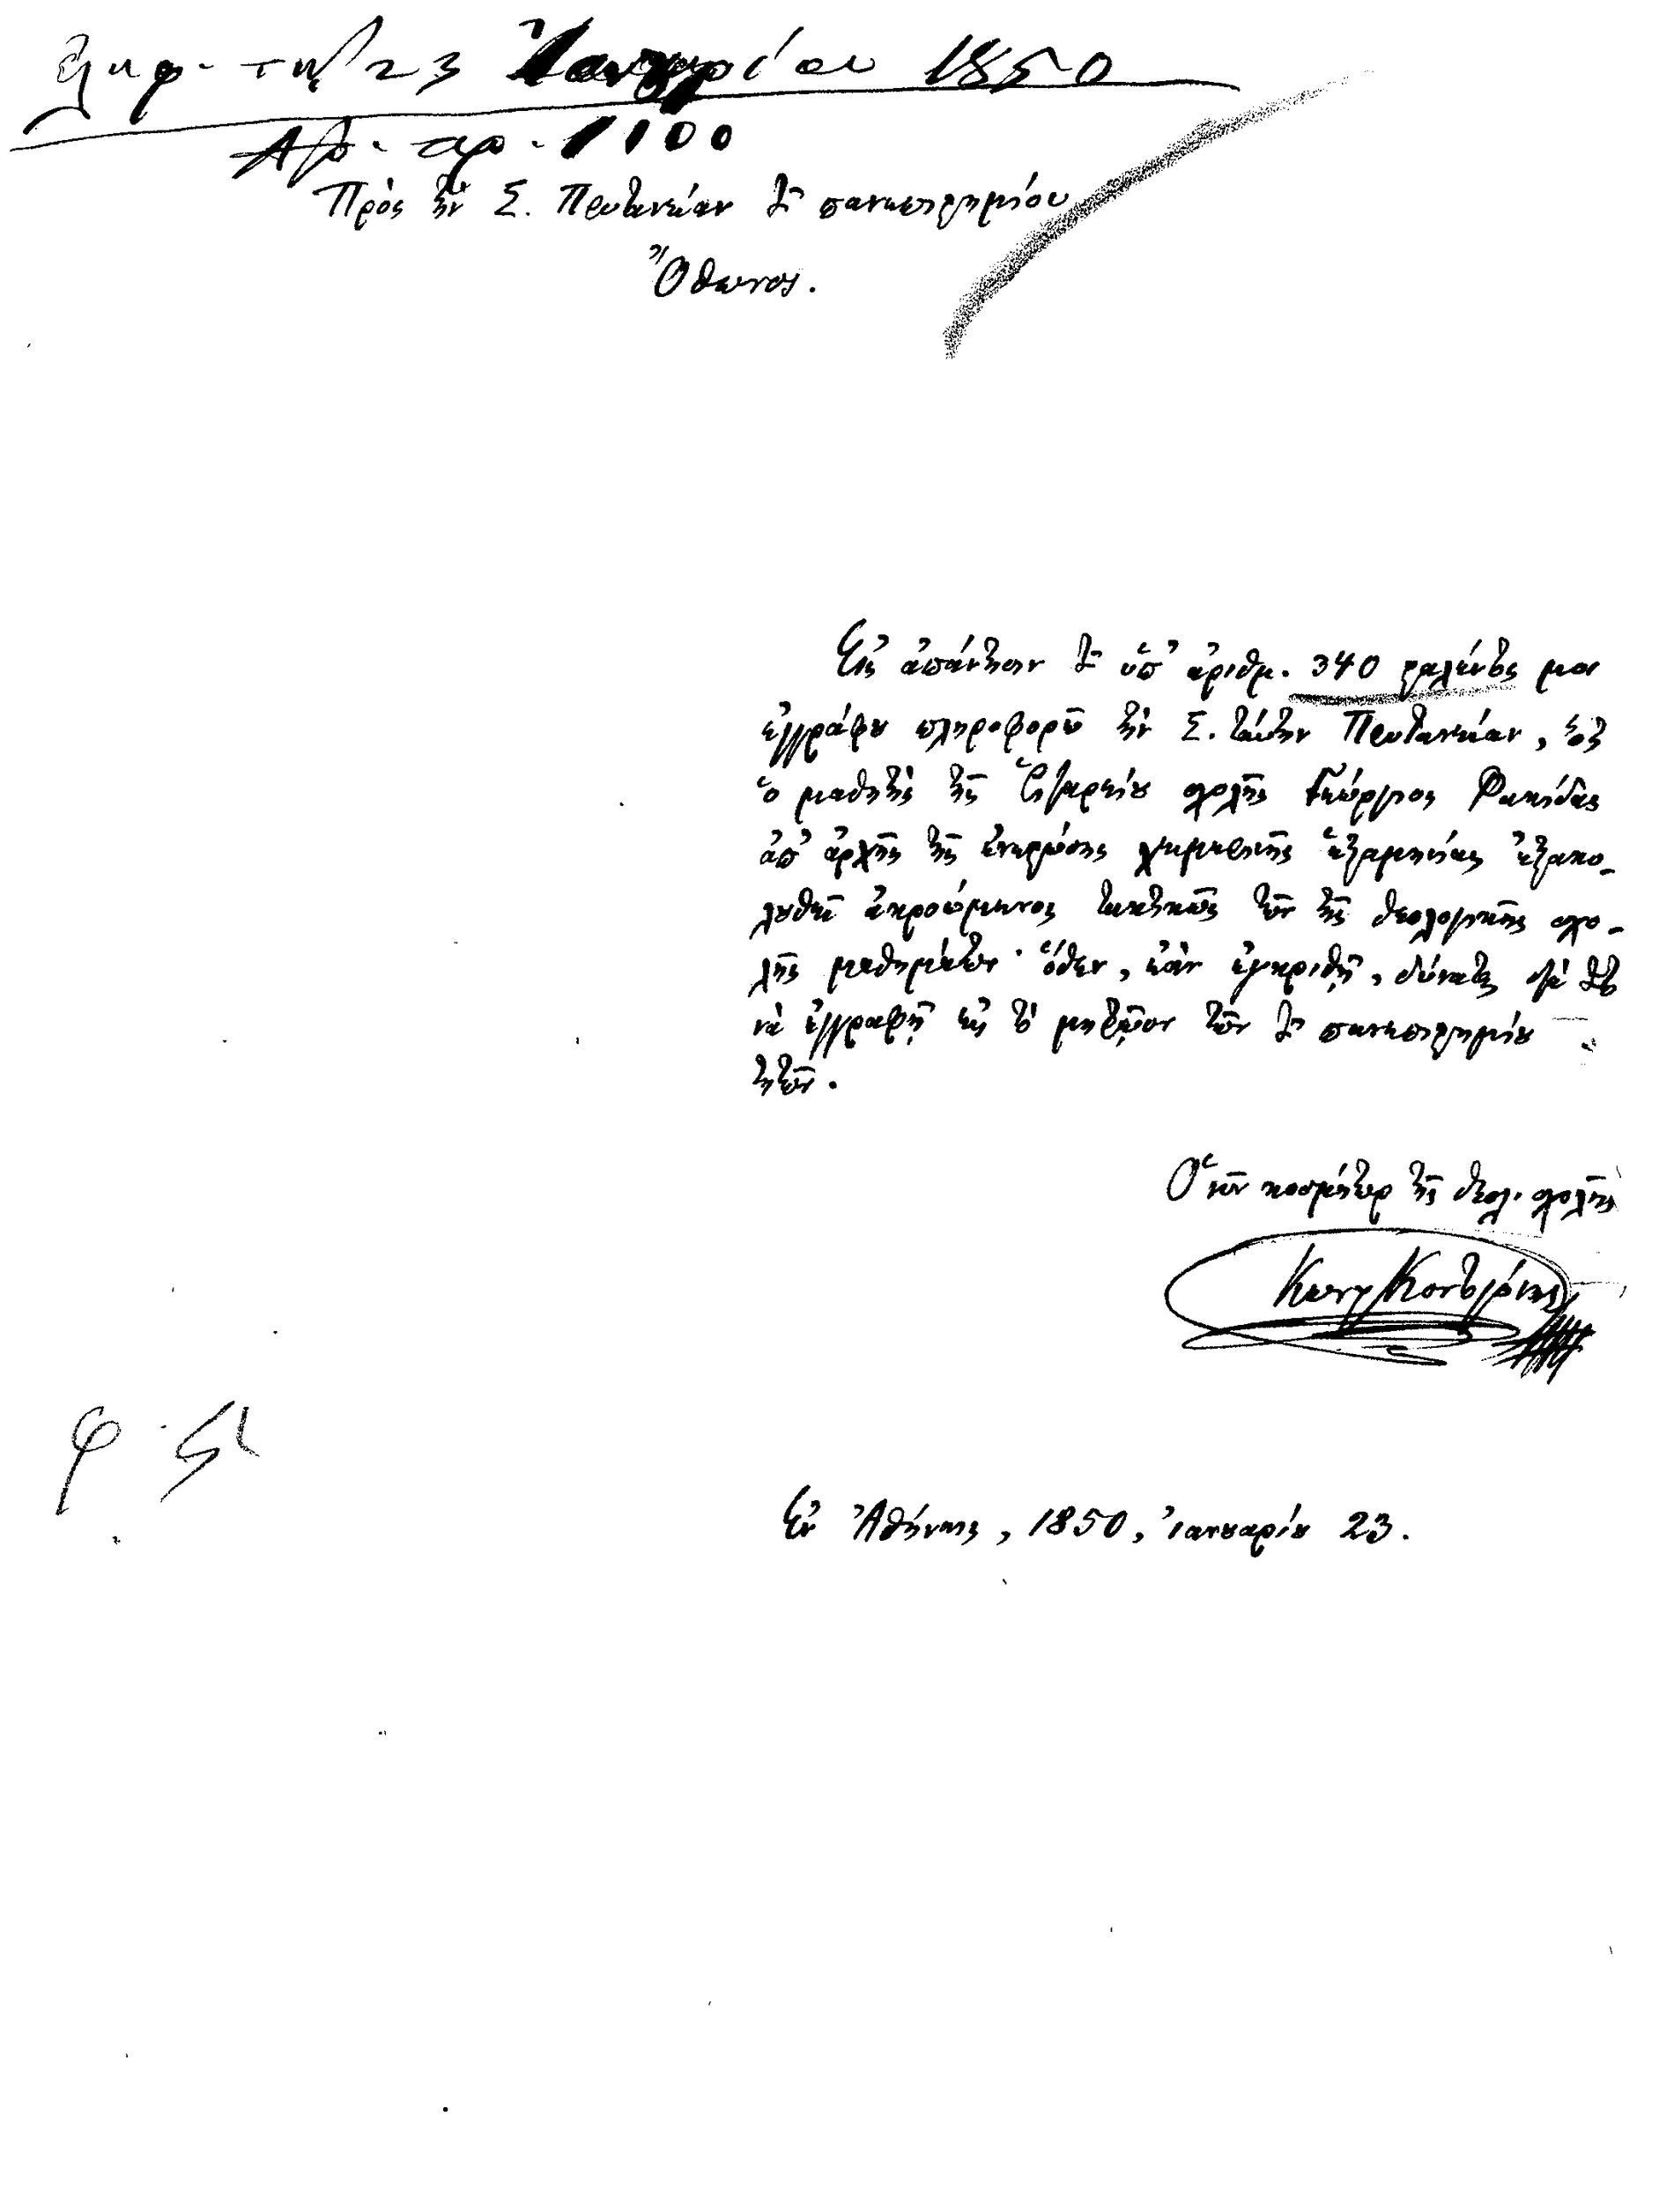 ἐλήφ. τῇ 23 Ἰανουαρίου 1850
Ἀρ. πρ. 1100
Πρὸς τὴν Σ. Πρυτανείαν τοῦ πανεπιστημίου
Ὄθωνος.
Εἰς ἀπάντησιν τοῦ ὑπ' ἀριθμ. 340 σταλέντος μοι
ἐγγράφου πληροφορῶ τὴν Σ. ταύτην Πρυτανείαν, ὅτι
ὁ μαθητὴς τῆς Ῥιζαρείου σχολῆς Γεώργιος Φακίδης
ἀπ' ἀρχῆς τῆς ἐνεστώσης χειμερινῆς ἑξαμηνίας ἐξακο-
λουθεῖ ἀκροώμενος τακτικῶς τῶν τῆς θεολογικῆς σχο-
λῆς μαθημάτων· ὅθεν, ἐὰν ἐγκριθῇ, δύναται διὰ τοῦτο
νὰ ἐγγραφῇ εἰς τὸ μητρῷον τῶν τοῦ πανεπιστημίου
τητῶν.
Ὁ νῦν κοσμήτωρ τῆς θεολ. σχολῆς
Κωνσ Κοντογόνης
Ἐν Ἀθήναις, 1850, ἰανουαρίου 23.